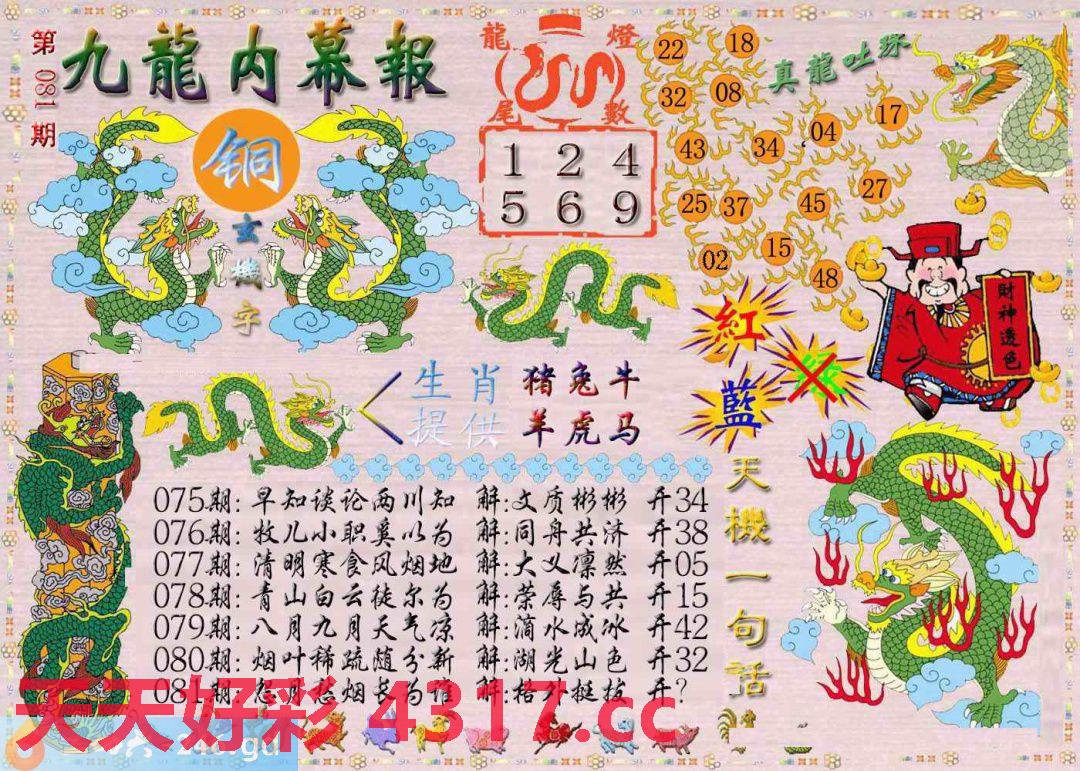 第081期
九龍内幕報
铜
玄機字
龍燈尾數
1 2 4
5 6 9
真龍吐珠
22 18
32 08
43 34 04 17
25 37 45 27
02 15 48
財神透色
紅
藍
生肖 猪兔牛
提供 羊虎马
天機一句话
075期: 早知谈论两川知 解:文质彬彬 开34
076期: 牧儿小职莫以为 解:同舟共济 开38
077期: 清明寒食风烟地 解:大义凛然 开05
078期: 青山白云徒尔为 解:荣辱与共 开15
079期: 八月九月天气凉 解:滴水成冰 开42
080期: 烟叶稀疏随分新 解:湖光山色 开32
081期: 怨月愁烟长为谁 解:格外挺拔 开?
天天好彩 4317.cc